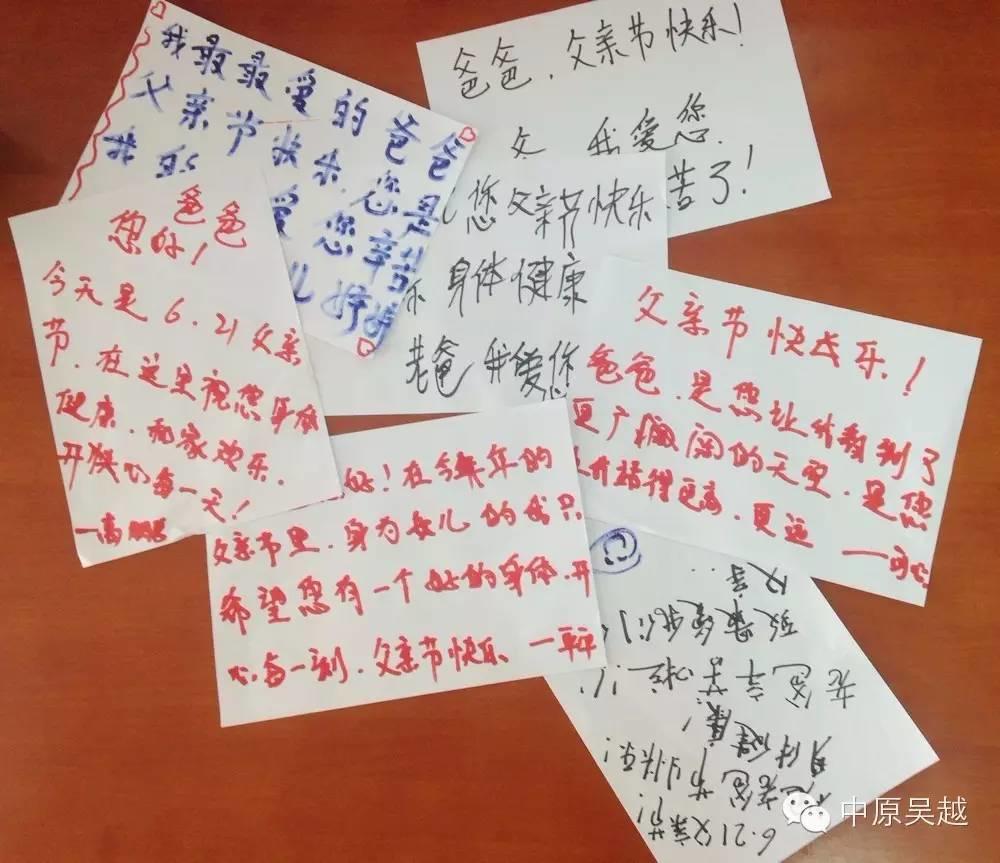 我最最爱的爸爸
父亲节快乐.您是
我
爱您辛苦
儿婷婷
爸爸,父亲节快乐!
我爱您.
苦了!
您父亲节快乐
身体健康
老爸 我爱您
爸爸
您好!
今天是6.21父亲
节.在这里祝您身体
健康.
开心每一天!
父亲节快乐!
爸爸.是您让我看到了
更广阔的天空.是您
更高.更远
好!在今年的
父亲节里.身为女儿的我只
希望您有一个好的身体.开
心每一刻.父亲节快乐
6.21父亲节!
祝老爸节日快乐!
身体健康!
老爸辛苦啦!
中原吴越